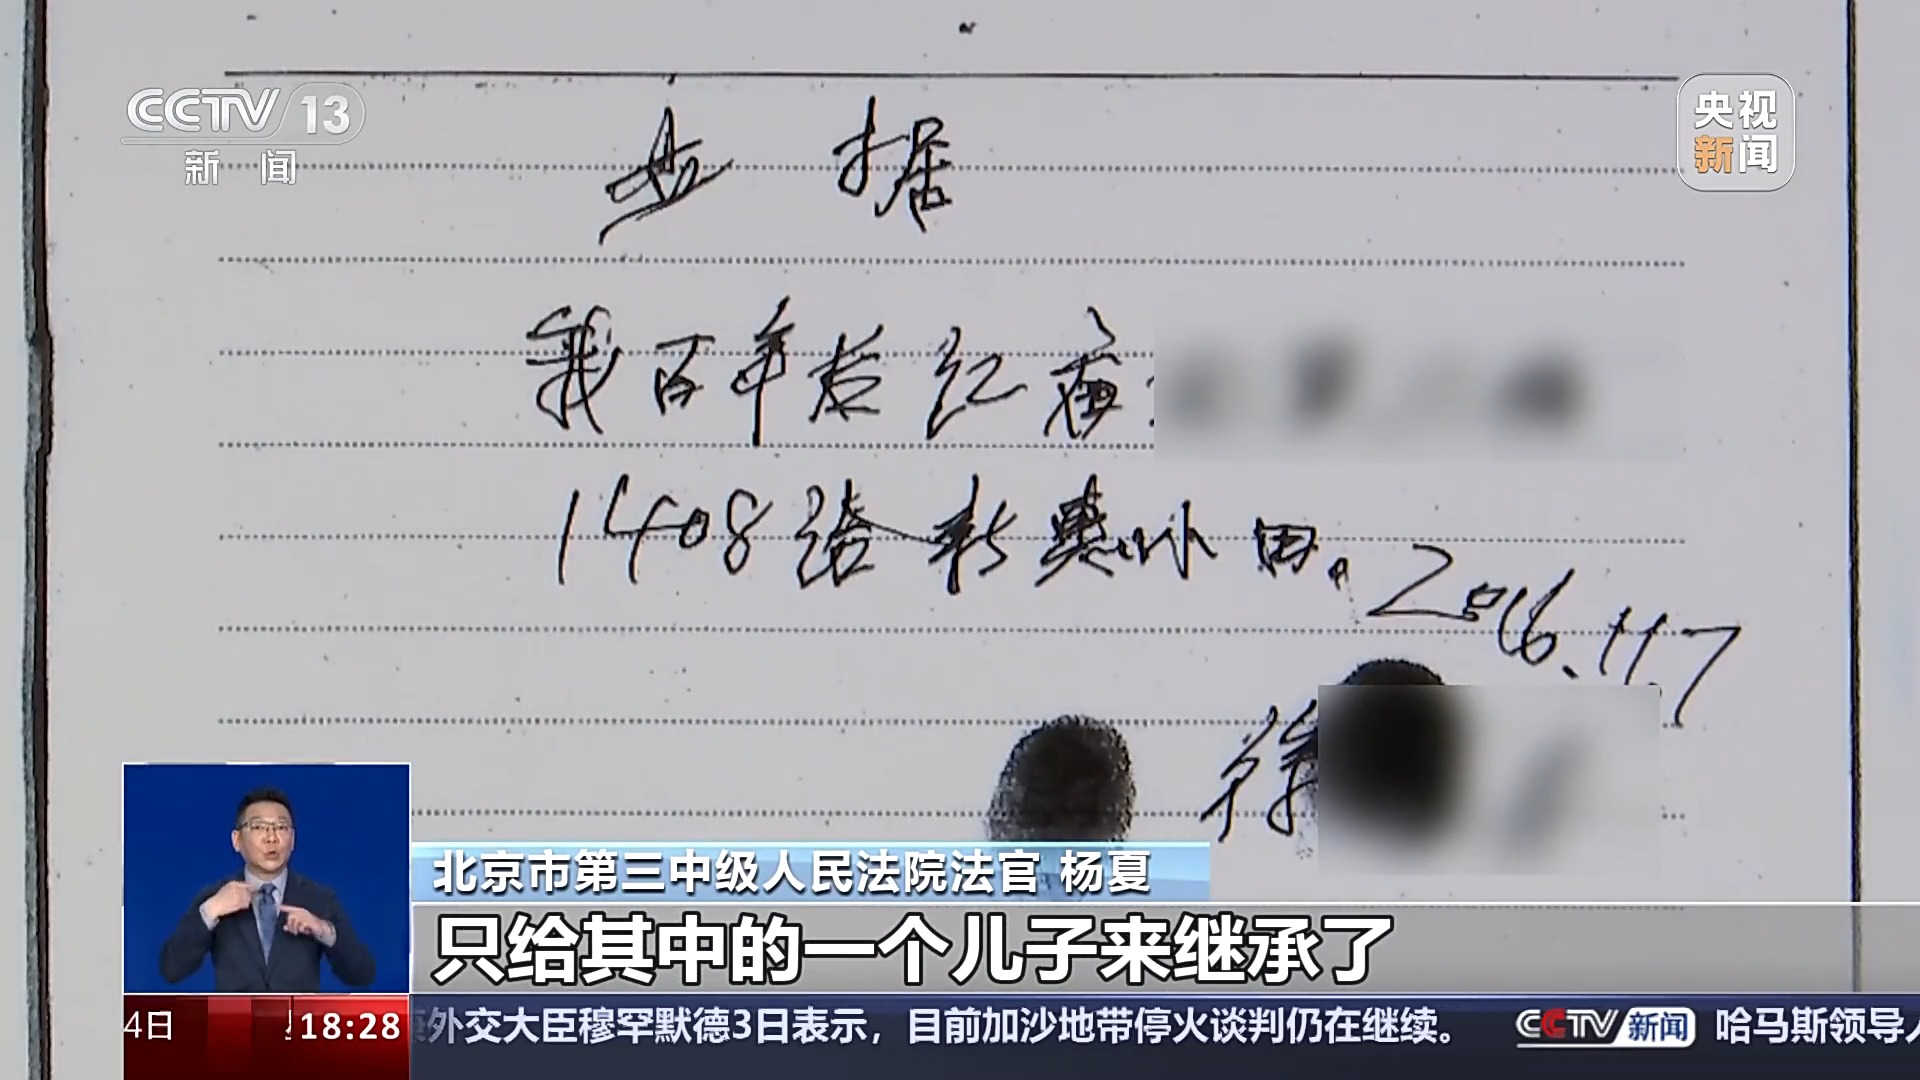 CCTV 13
新闻
央视
新闻
字据
我百年后红庙
1408给彩惠外田。
2016.11.7
徐
北京市第三中级人民法院法官 杨夏
只给其中的一个儿子来继承了
4日
18:28
外交大臣穆罕默德3日表示，目前加沙地带停火谈判仍在继续。
CCTV 新闻
哈马斯领导